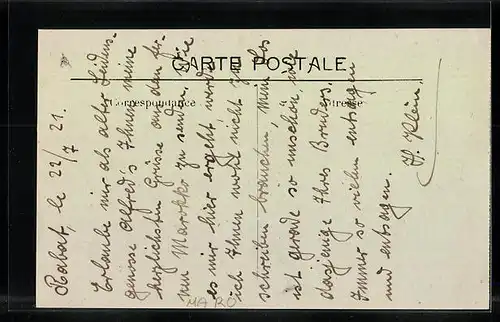 CARTE POSTALE
Correspondance
Adresse
Rabat, le 22/7 21.
Erlaube mir als alter Leidens-
genosse Alfred's Ihnen meine
herzlichsten Grüsse aus dem fer-
nen Marokko zu senden. Wie
es mir hier ergeht werde
ich Ihnen wohl nicht zu
schreiben brauchen, mein Los
ist gerade so unschön, wie
dasjenige Ihres Bruders.
Immer so vielem entsagen
und entsagen. Klein.
MARO